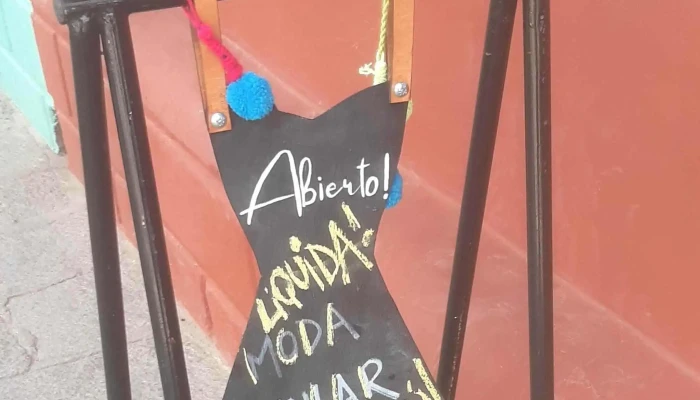 Abierto!
LiQUIDA!
MODA